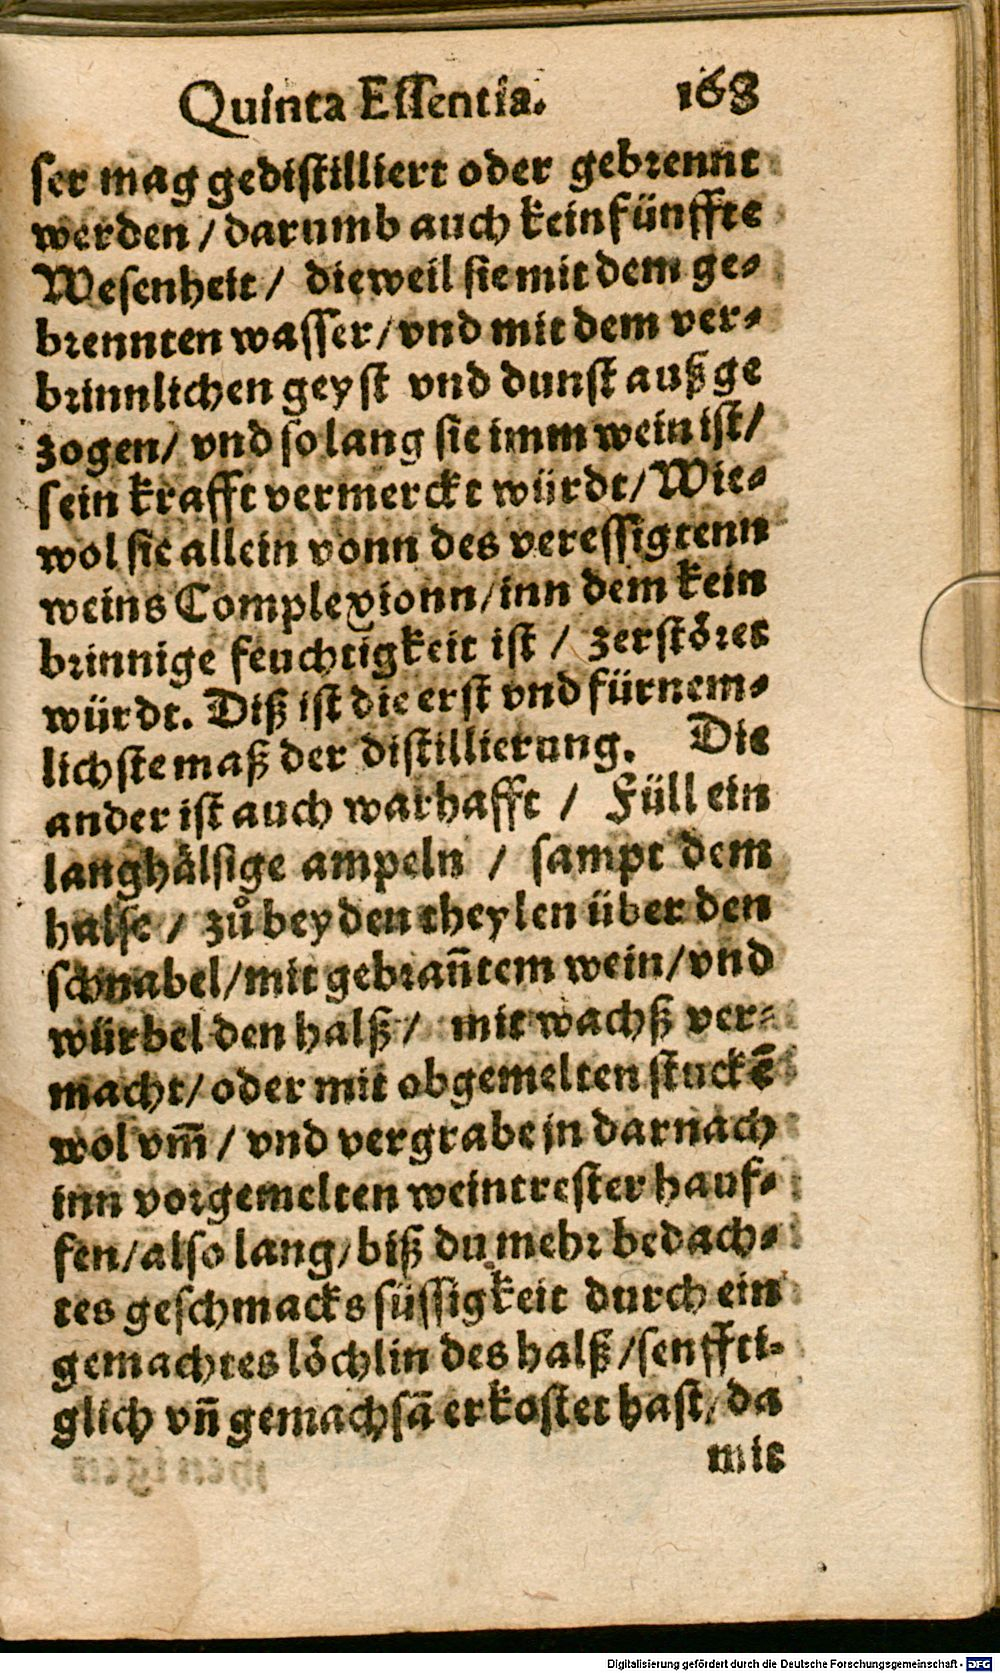 Quinta Essentia. 163
ser mag gedistilliert oder gebrennt
werden / darumb auch kein fünffte
Wesenheit / dieweil sie mit dem ge-
brennten wasser / vnd mit dem ver-
brinnlichen geyst vnd dunst außge
zogen / vnd so lang sie imm wein ist /
sein krafft vermerckt würdt / Wie-
wol sie allein vonn des veressigtenn
weins Complexionn / inn dem kein
brinnige feuchtigkeit ist / zerstöret
würdt. Diß ist die erst vnd fürnem-
lichste maß der distillierung. Die
ander ist auch warhafft / Füll ein
langhälsige ampeln / sampt dem
halse / zů beyden theylen über den
schnabel / mit gebrañtem wein / vnd
würbel den halß / mit wachß ver-
macht / oder mit obgemelten stuckē
wol vm̃ / vnd vergrabe jn darnach
inn vorgemelten weintrester hauf-
fen / also lang / biß du mehr bedach-
tes geschmacks süssigkeit durch ein
gemachtes löchlin des halß / senffti-
glich vñ gemachsā erkostet hast / da
mit
Digitalisierung gefördert durch die Deutsche Forschungsgemeinschaft - DFG